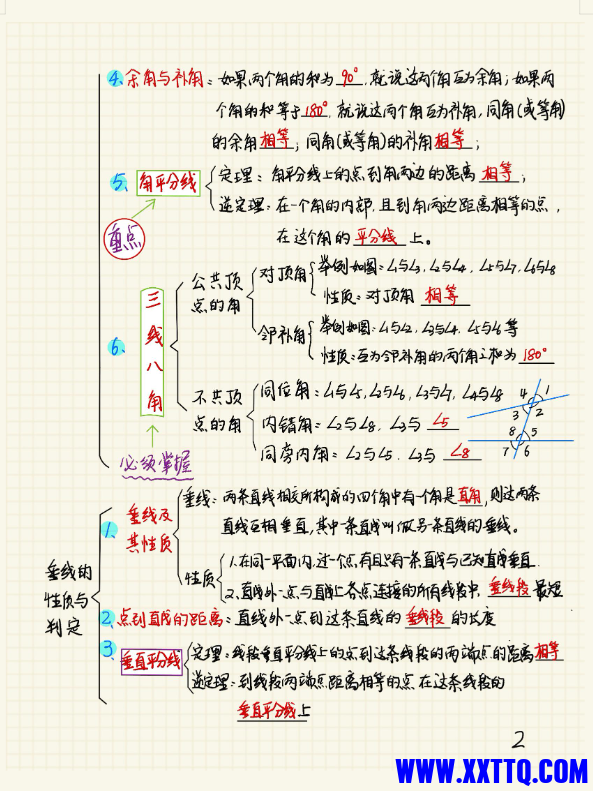 4、余角与补角：如果两个角的和为90°，就说这两个角互为余角；如果两
个角的和等于180°，就说这两个角互为补角，同角(或等角)
的余角相等；同角(或等角)的补角相等；
5、角平分线
定理：角平分线上的点到角两边的距离相等；
逆定理：在一个角的内部，且到角两边距离相等的点，
在这个角的平分线上。
重点
6、三线八角
公共顶点的角
对顶角
举例如图：∠1与∠3，∠2与∠4，∠5与∠7，∠6与∠8
性质：对顶角相等
邻补角
举例如图：∠1与∠2，∠3与∠4，∠5与∠6等
性质：互为邻补角的两个角之和为180°
不共顶点的角
同位角：∠1与∠5，∠2与∠6，∠3与∠7，∠4与∠8
内错角：∠2与∠8，∠3与∠5
同旁内角：∠2与∠5，∠3与∠8
4 1
3 2
8 5
7 6
必须掌握
垂线的性质与判定
1、垂线及其性质
垂线：两条直线相交所构成的四个角中有一个角是直角，则这两条
直线互相垂直，其中一条直线叫做另一条直线的垂线。
性质
1、在同一平面内，过一个点，有且只有一条直线与已知直线垂直
2、直线外一点与直线上各点连接的所有线段中，垂线段最短
2、点到直线的距离：直线外一点到这条直线的垂线段的长度
3、垂直平分线
定理：线段垂直平分线上的点到这条线段的两端点的距离相等
逆定理：到线段两端点距离相等的点在这条线段的
垂直平分线上
2
WWW.XXTTQ.COM